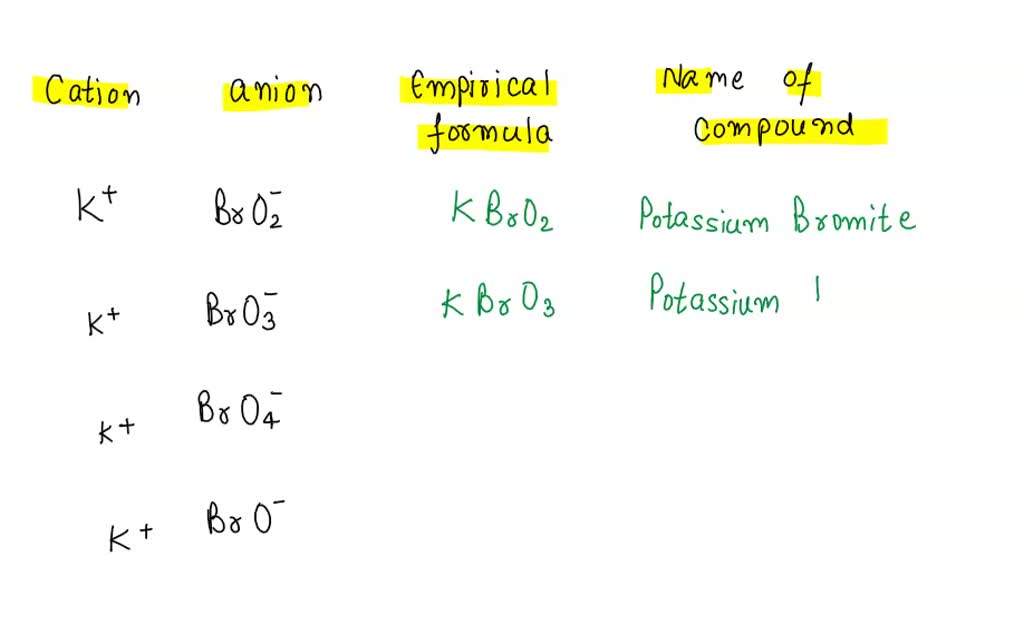 Cation anion Empirical formula Name of compound
K⁺ BrO₂⁻ KBrO₂ Potassium Bromite
K⁺ BrO₃⁻ KBrO₃ Potassium
K⁺ BrO₄⁻
K⁺ BrO⁻